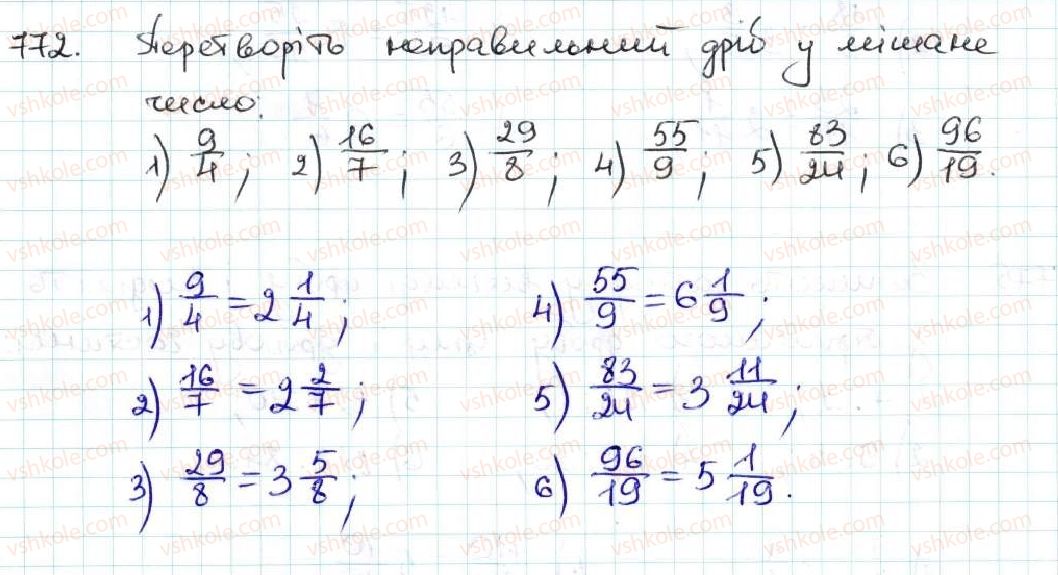 772. Перетворіть неправильний дріб у мішане
число:
1) 9/4; 2) 16/7; 3) 29/8; 4) 55/9; 5) 83/24; 6) 96/19.
1) 9/4 = 2 1/4;
2) 16/7 = 2 2/7;
3) 29/8 = 3 5/8;
4) 55/9 = 6 1/9;
5) 83/24 = 3 11/24;
6) 96/19 = 5 1/19.
vshkole.com